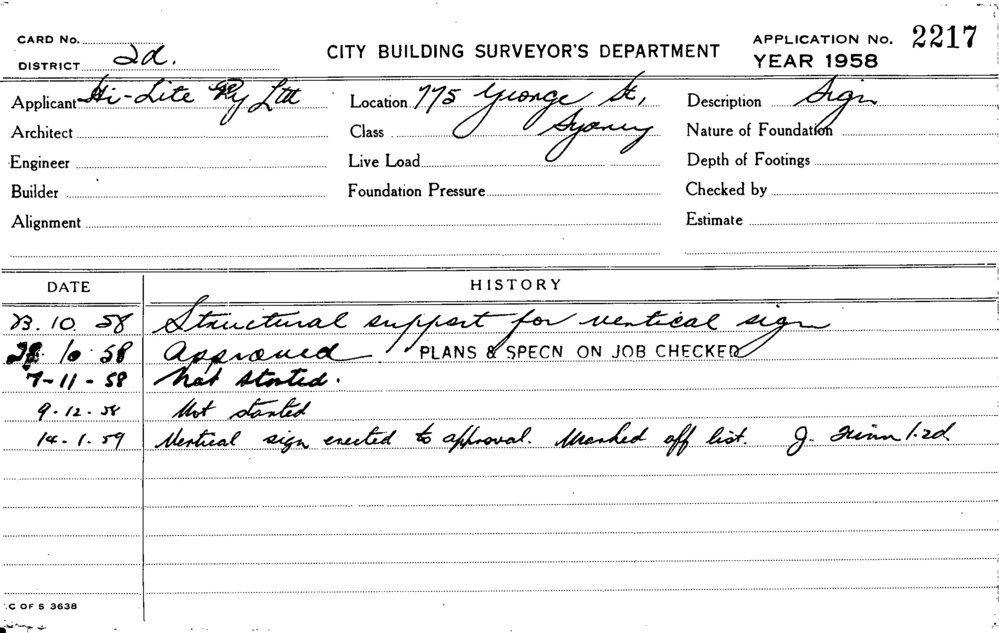 CARD No.
DISTRICT 2d.
CITY BUILDING SURVEYOR'S DEPARTMENT
APPLICATION No. 2217
YEAR 1958
Applicant Hi-Lite Pty Ltd
Location 775 George St,
Description Sign
Architect
Class Sydney
Nature of Foundation
Engineer
Live Load
Depth of Footings
Builder
Foundation Pressure
Checked by
Alignment
Estimate
DATE HISTORY
23. 10. 58 Structural support for vertical sign
10. 58 Approved. PLANS & SPECN ON JOB CHECKED
7-11-58 Not started.
9.12.58 Not started
14.1.59 Vertical sign erected to approval. Marked off list. J.
C OF S 3638